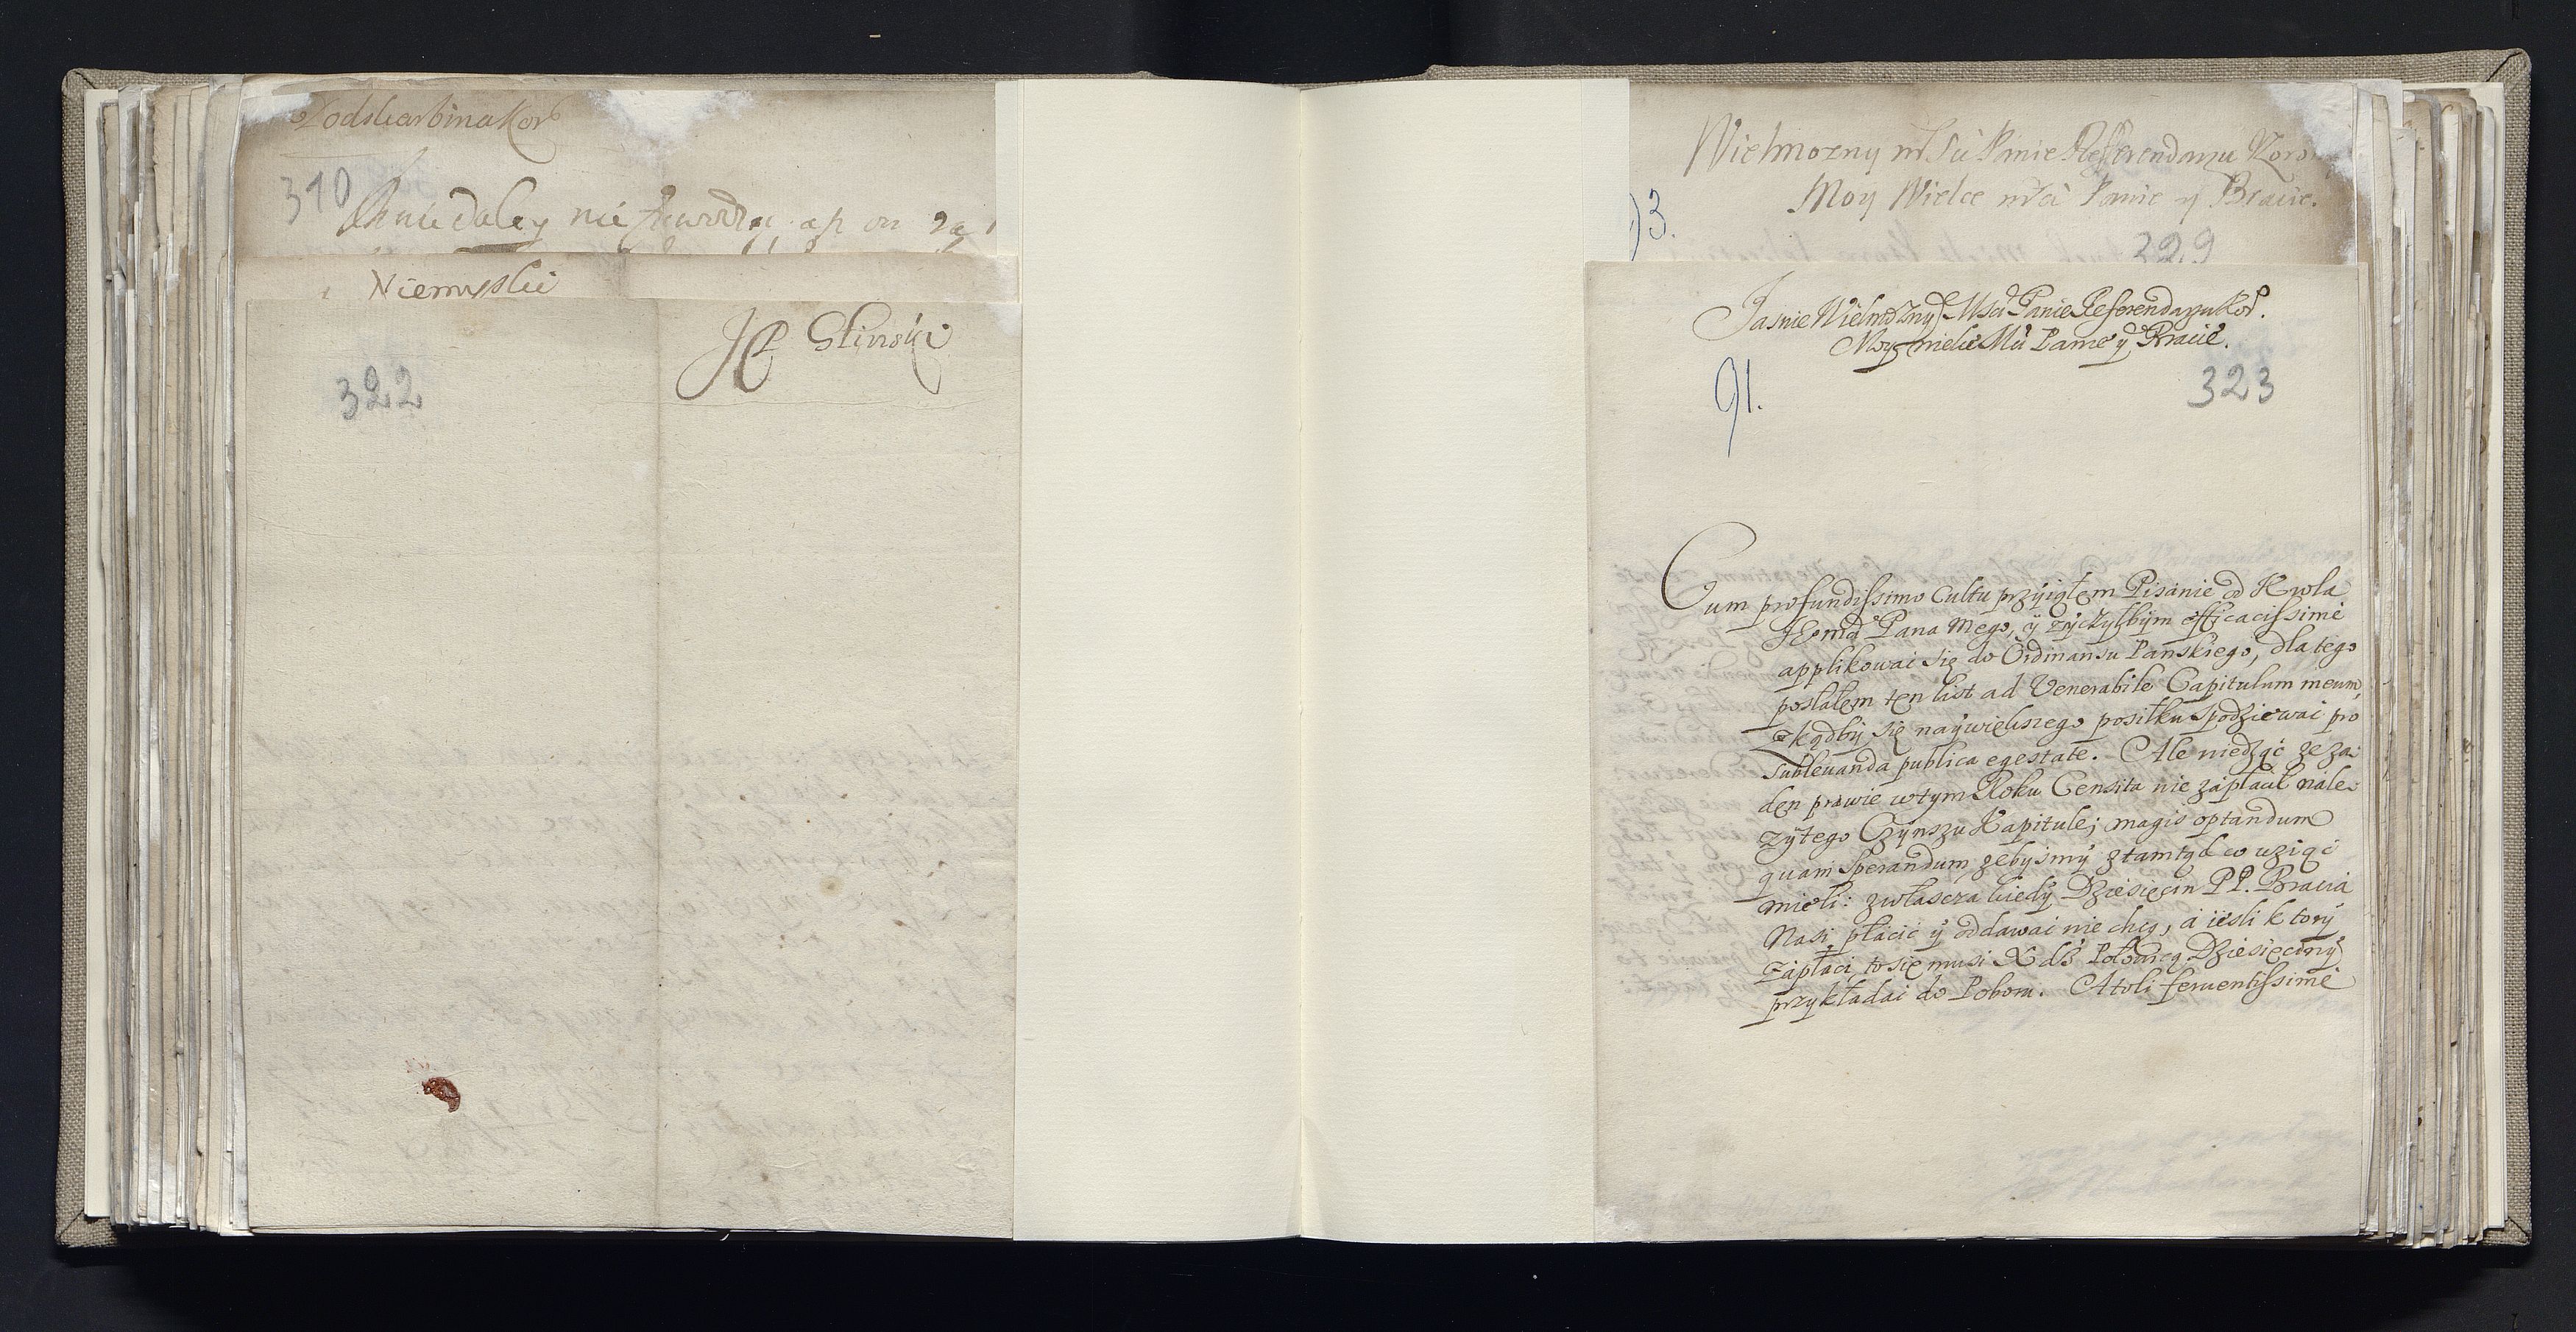 Podskarbinakor
310
Niemyslii
322
JP Glinski
Wielmozny Panie Referendarzu Koron
Moy Wielce Panie y Bracie.
93.
329
Jasnie Wielmożny Msci Panie Referendarzu Kor.
Moy wielce Mci Panie y Bracie.
91.
323
Cum profundissimo cultu przyiąłem Pisanie od Krola
Jeomci Pana Mego, y zyczyłbym efficacissime
applikowai się do Ordinansu Panskiego, dla tego
posłałem ten list ad Venerabile Capitulum meum,
zkądby się naywiekszego posiłku spodziewai pro
subleuanda publica egestate. Ale wiedząc ze za:
den prawie wtym Roku Censita nie zapłacił nale:
zytego Czynszu Kapitule; magis optandum
quam sperandum zebysmy ztamtąd co uziąć
mieli: zwłascza kiedy Dziesięcin PP. Bracia
Nasi płacic y oddawai nie chcą, a iesli ktory
zapłaci, to się musi X dź Połowicą Dziesięciny
przykładai do Poboru. Atoli feruentissime